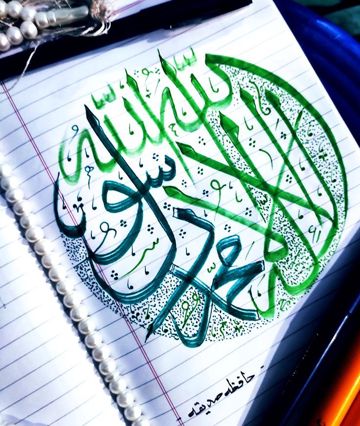 لا اله الا الله
محمد رسول الله
حافظه صديقه